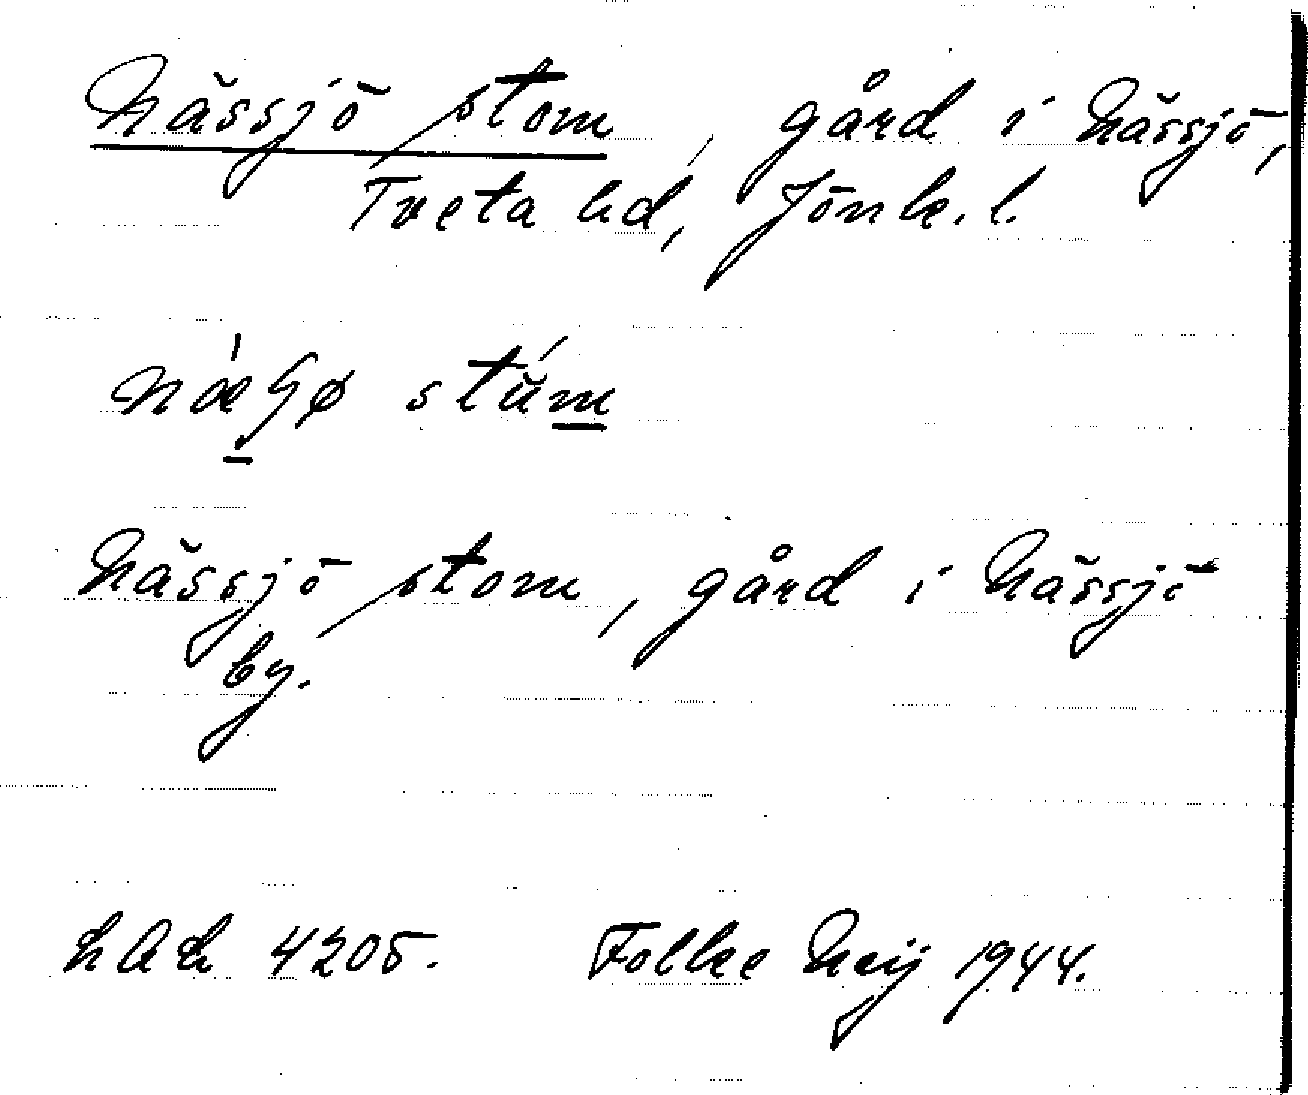 Nässjö stom, gård i Nässjö,
Tveta hd, Jönk. l.
Nässjö stom, gård i Nässjö
by.
4205. Folke 1944.